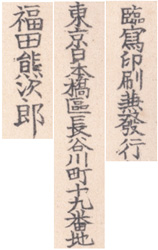 臨寫印刷兼發行
東京日本橋區長谷川町十九番地
福田熊次郎